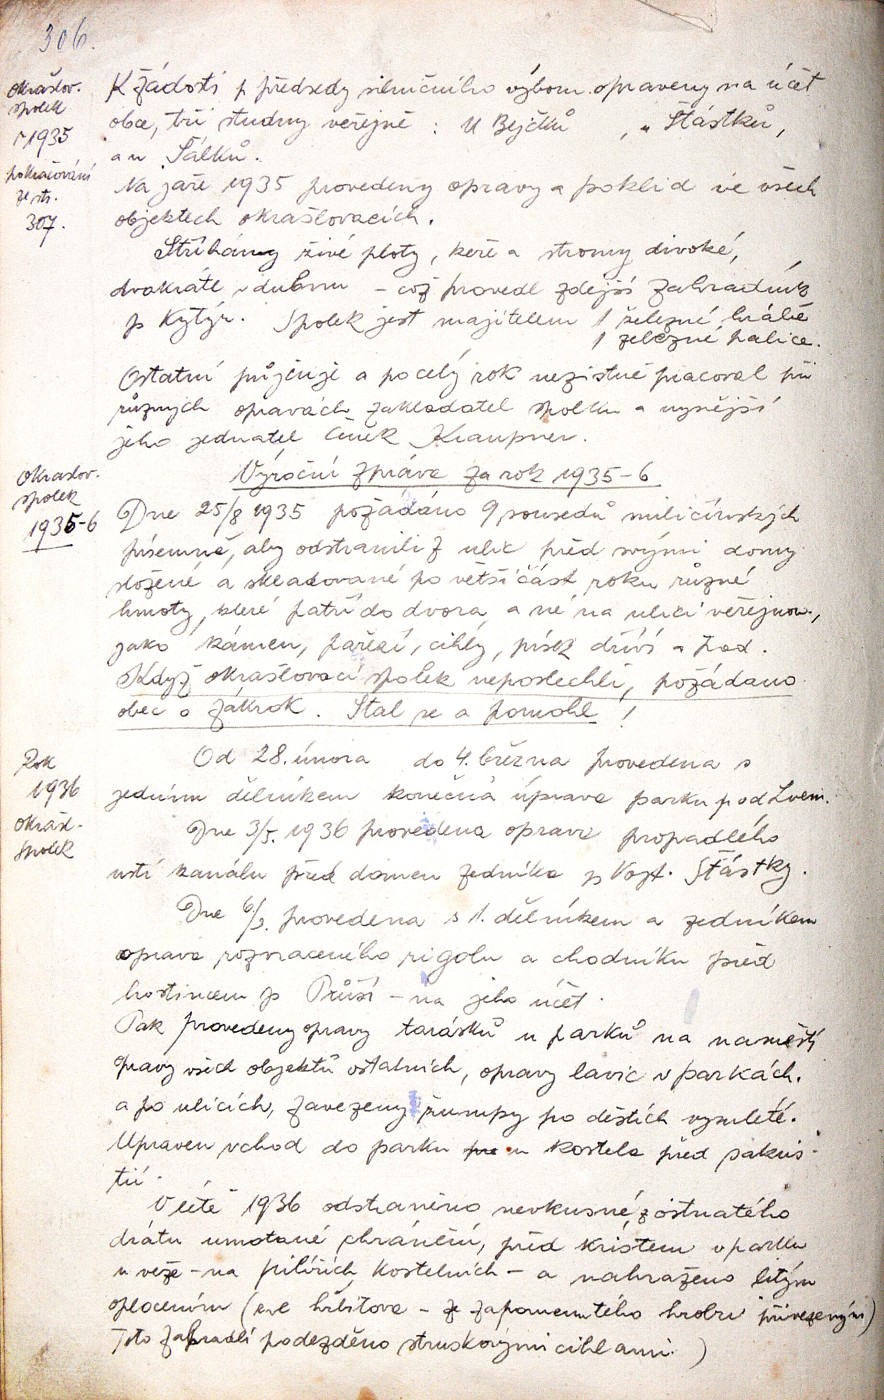 306.
Okrašlov.
spolek
r 1935
pokračování
ze str.
307.
K žádosti p předsedy silničního výboru opraveny na účet
obce, tři studny veřejné: U Bejčků, „ Šťástků,
a u Šálků.
Na jaře 1935 provedeny opravy a poklid ve všech
objektech okrašlovacích.
Stříhány živé ploty, keře a stromy divoké,
dvakráte v dubnu – což provedl zdejší zahradník
p Kytýr. Spolek jest majitelem 1 železné hrábě
1 železné palice.
Ostatní půjčuje a po celý rok nezistně pracoval při
různých opravách zakladatel spolku a nynější
jeho jednatel Čeněk Kraupner.
Výroční zpráva za rok 1935-6
Okrašlov.
spolek
1935-6
Dne 25/8 1935 požádáno 9 sousedů miličínských
písemně, aby odstranili z ulic před svými domy
složené a skladované po větší část roku různé
hmoty, které patří do dvora, a né na ulici veřejnou,
jako kámen, pařezí, cihly, písek dříví a pod.
Když okrašlovací spolek neposlechli, požádáno
obec o zákrok. Stal se a pomohl!
Rok
1936
Okrášl.
spolek
Od 28. února do 4. března provedena s
jedním dělníkem konečná úprava parku pod Lvem.
Dne 3/5. 1936 provedena oprava propadlého
ustí kanálu před domem zedníka p Vojt. Šťástky.
Dne 6/3. provedena s 1. dělníkem a zedníkem
oprava rozvraceného rigolu a chodníku před
hostincem p Průší – na jeho účet.
Pak provedeny opravy tarásků u parků na naměstí
opravy všech objektů ostatních, opravy lavic v parkách.
a po ulicích, zavezeny žumpy po deštích vymleté.
Upraven vchod do parku u kostela před sakris-
tií.
V létě 1936 odstraněno nevkusné, z ostnatého
drátu umotané chránění, před kristem v parku
u veže – na pilířích kostelních – a nahraženo litým
oplocením (ze hřbitova – ze zapomenutého hrobu přivezeným)
Toto zahradlí podezděno struskovými cihlami.)